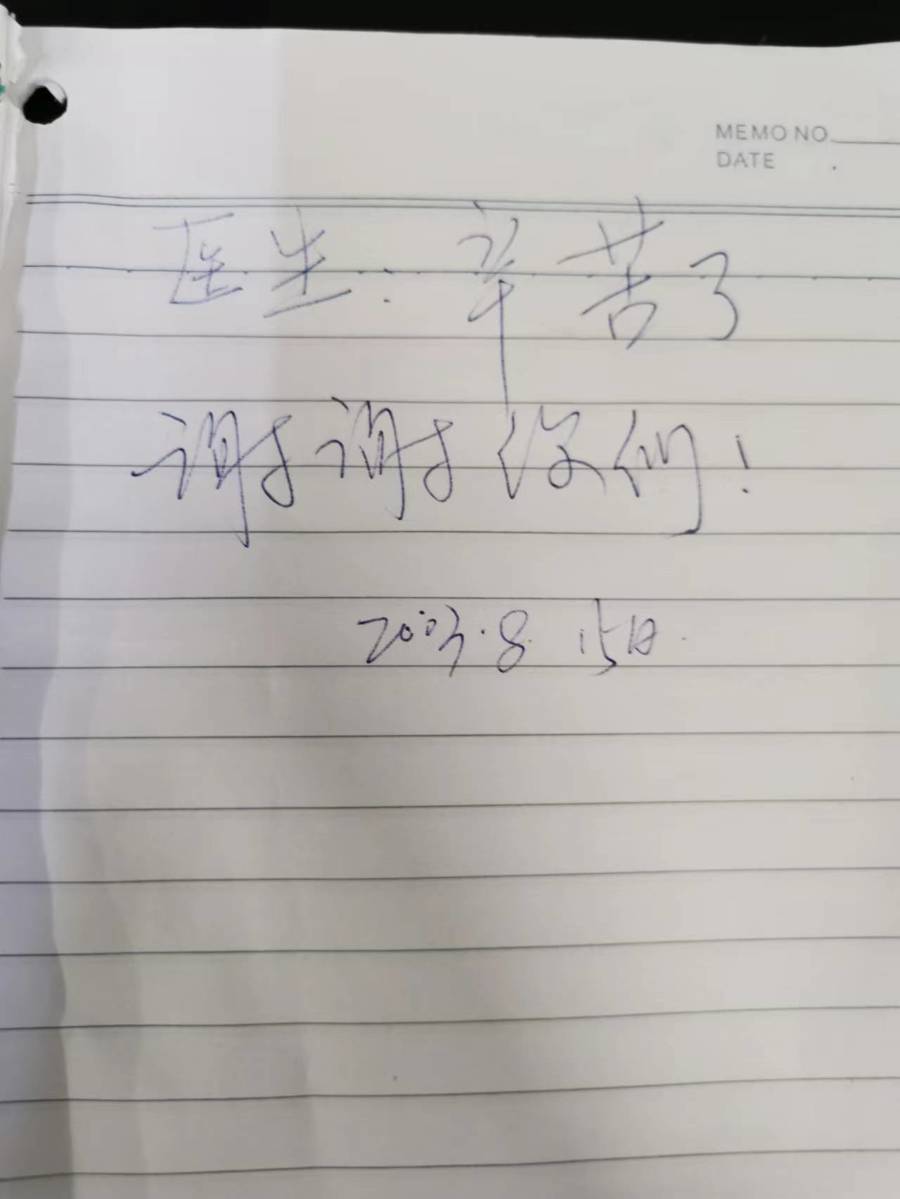 MEMO NO.
DATE
医生:辛苦了
谢谢你们!
2003.8 15日.